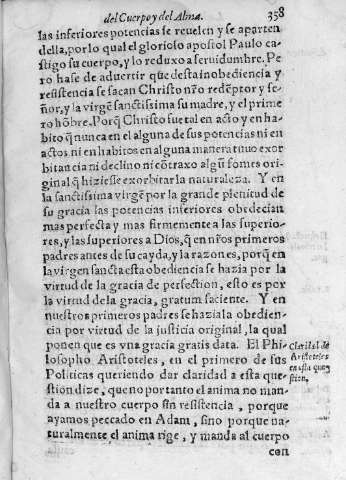 del Cuerpo y del Alma.
358
las inferiores potencias se reuelen y se aparten
della, por lo qual el glorioso apostol Paulo ca-
stigo su cuerpo, y lo reduxo a seruidumbre. Pe
ro hase de aduertir que desta inobediencia y
resistencia se sacan Christo nr̃o redẽptor y se-
ñor, y la virgẽ sanctissima su madre, y el prime
ro hõbre. Porq̃ Christo fue tal en acto y en ha
bito q̃ nunca en el alguna de sus potencias ni en
actos ni en habitos en alguna manera tuuo exor
bitancia ni declino ni cõtraxo algũ fomes ori-
ginal q̃ hiziesse exorbitar la naturaleza. Y en
la sanctissima virgẽ por la grande plenitud de
su gracia las potencias inferiores obedecian
mas perfecta y mas firmemente a las superio-
res, y las superiores a Dios, q̃ en nr̃os primeros
padres antes de su cayda, y la razon es, porq̃ en
la virgen sancta esta obediencia se hazia por la
virtud de la gracia de perfection, esto es por
la virtud de la gracia, gratum faciente. Y en
nuestros primeros padres se hazia la obedien-
cia por virtud de la justicia original, la qual
ponen que es vna gracia gratis data. El Phi-
losopho Aristoteles, en el primero de sus
Politicas queriendo dar claridad a esta que-
stion dize, que no por tanto el animo no man-
da a nuestro cuerpo sin resistencia, porque
ayamos peccado en Adam, sino porque na-
turalmente el anima rige, y manda al cuerpo
con
Claridad de
Aristoteles
en esta que-
stion.